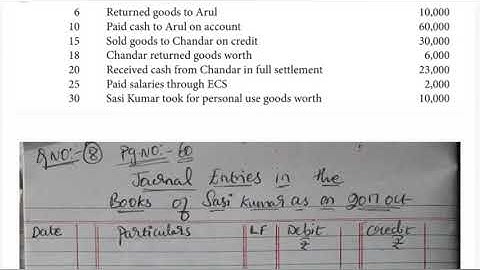 6 Returned goods to Arul 10,000
10 Paid cash to Arul on account 60,000
15 Sold goods to Chandar on credit 30,000
18 Chandar returned goods worth 6,000
20 Received cash from Chandar in full settlement 23,000
25 Paid salaries through ECS 2,000
30 Sasi Kumar took for personal use goods worth 10,000
Q NO:- 8 Pg NO:- 60
Journal Entries in the
Books of Sasi Kumar as on 2017 oct
Date Particulars LF Debit Credit
₹ ₹